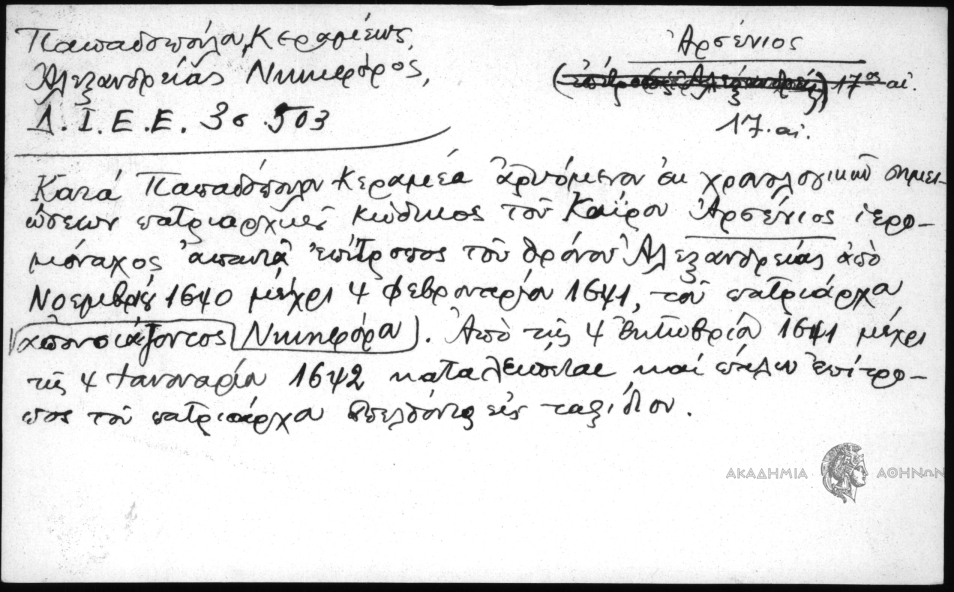 Παπαδοπούλου, Κεραμέως,
Ἀλεξανδρείας Νικηφόρος,
Δ.Ι.Ε.Ε. 3ος 503
Ἀρσένιος
(ἐπίτροπος Ἀλεξανδρείας) 17ος αἰ.
17. αἰ.
Κατά Παπαδόπουλον Κεραμέα ἀρυόμενον ἐκ χρονολογικῶν σημει-
ώσεων πατριαρχικοῦ κώδικος τοῦ Καΐρου Ἀρσένιος ἱερο-
μόναχος ἀπαντᾶ ἐπίτροπος τοῦ θρόνου Ἀλεξανδρείας ἀπό
Νοεμβρίου 1640 μέχρι 4 Φεβρουαρίου 1641, τοῦ πατριάρχου
ἀπουσιάζοντος Νικηφόρου. Ἀπό τῆς 4 Ὀκτωβρίου 1641 μέχρι
τῆς 4 Ἰανουαρίου 1642 καταλείπεται καί πάλιν ἐπίτρο-
πος τοῦ πατριάρχου ἀπελθόντος εἰς ταξίδιον.
ΑΚΑΔΗΜΙΑ ΑΘΗΝΩΝ